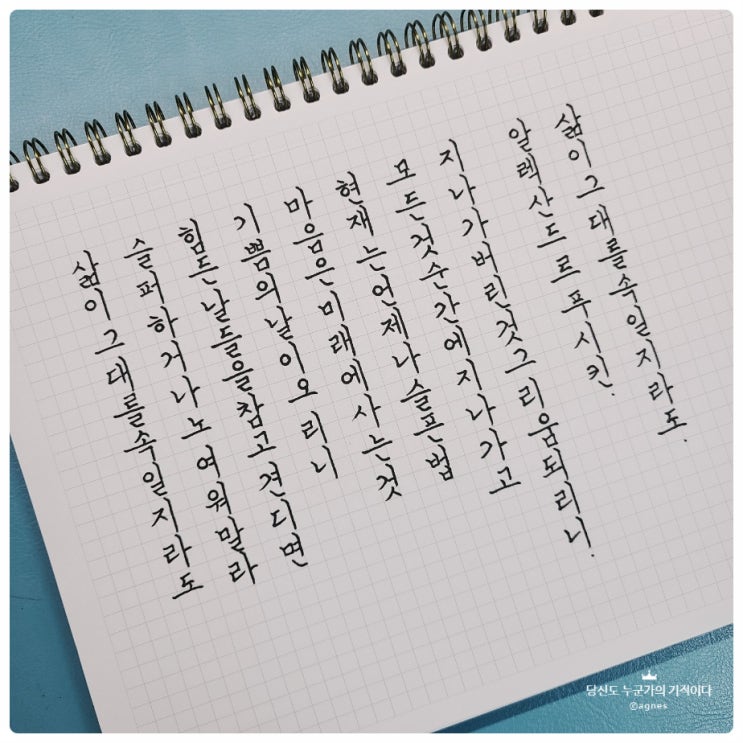 삶이그대를속일지라도
슬퍼하거나노여워말라
힘든날들을참고견디면
기쁨의날이오리니
마음은미래에사는것
현재는언제나슬픈법
모든것순간에지나가고
지나가버린것그리움되리니.
알렉산드르푸시킨.
삶이그대를속일지라도.
당신도 누군가의 기적이다
©agnes